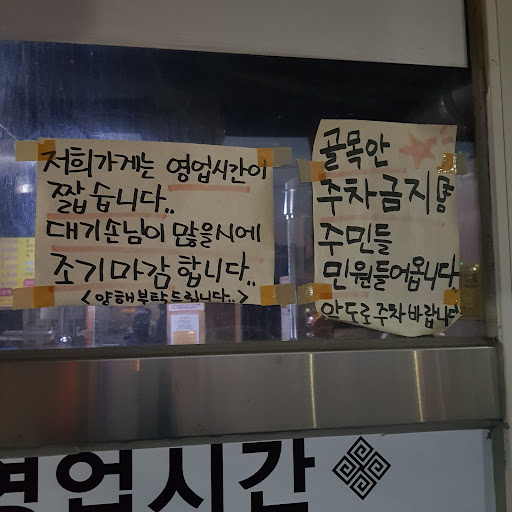 저희가게는 영업시간이
짧습니다..
대기손님이 많을시에
조기마감합니다..
<양해부탁드립니다..>
골목안
주차금지
주민들
민원들어옵니다
안도로주차바랍니다
영업시간